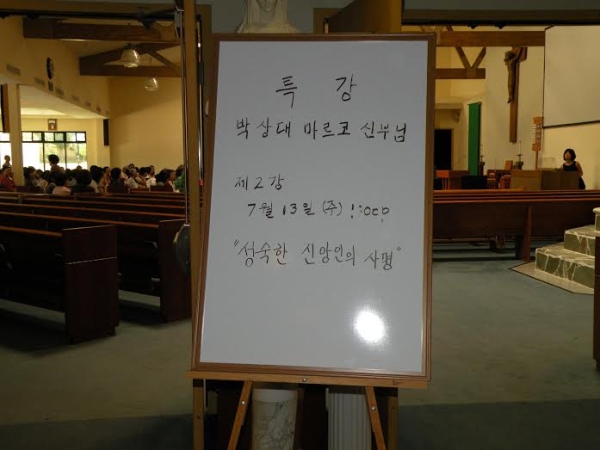 특 강
박상대 마르코 신부님
제2강
7월 13일 (주) 1:00p
"성숙한 신앙인의 사명"